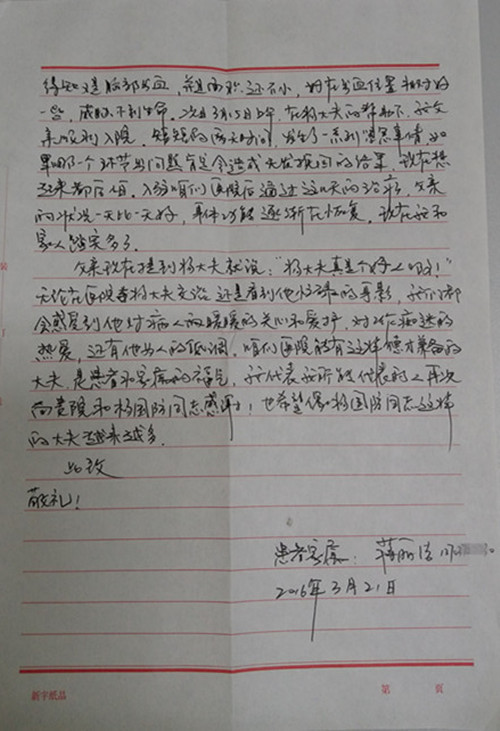 得知是脑部出血，并且面积还不小，好在出血位置相对好
一些，威胁不到生命。次日3月15日上午，在杨大夫的帮助下，我父
亲顺利入院。短短的两天时间，发生了一系列的事情，如
果哪一个环节出问题肯定会造成无法挽回的结果，现在想
起来都后怕。入住咱们医院后通过这几天的治疗，父亲
的状况一天比一天好，身体功能逐渐在恢复。现在我和
家人踏实多了。
父亲现在提到杨大夫就说："杨大夫真是个好人啊！"
无论在医院与杨大夫交谈，还是看到他忙碌的身影，我们都
会感受到他对病人的暖暖的关心和爱护，对工作痴迷的
热爱，还有他为人的低调。咱们医院能有这样德才兼备的
大夫，是患者和家属的福气，我代表我所能代表的人再次
向贵院和杨国防同志感谢！也希望像杨国防同志这样
的大夫越来越多。
此致
敬礼！
患者家属：蒋丽洁
2016年3月21日
新宇纸品 第 页